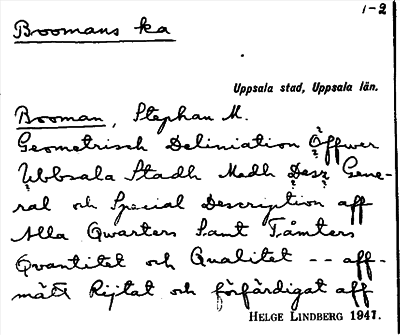 1-2
Boomans ka
Uppsala stad, Uppsala län.
Booman, Stephan M.
Geometrisch Deliniation Öffwer
Ubbsala Stadh Medh Desz Gene-
ral och Special Description aff
Alla Qwarters Samt Tåmters
Qvantitet och Qualitet -- aff-
mätt Rijtat och förfärdigat aff
HELGE LINDBERG 1941.